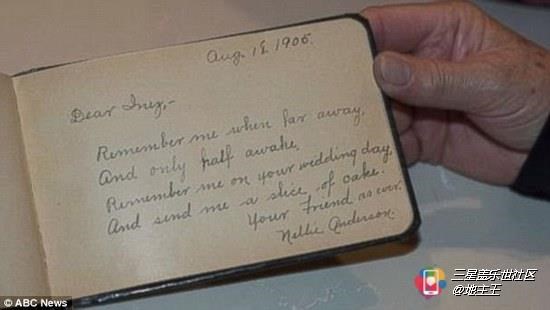 Aug. 18 1906.
Dear Inez,-
Remember me when far away,
And only half awake,
Remember me on your wedding day,
And send me a slice of cake.
Your Friend as ever.
Nellie Anderson.
© ABC News
三星盖乐世社区
@地主王